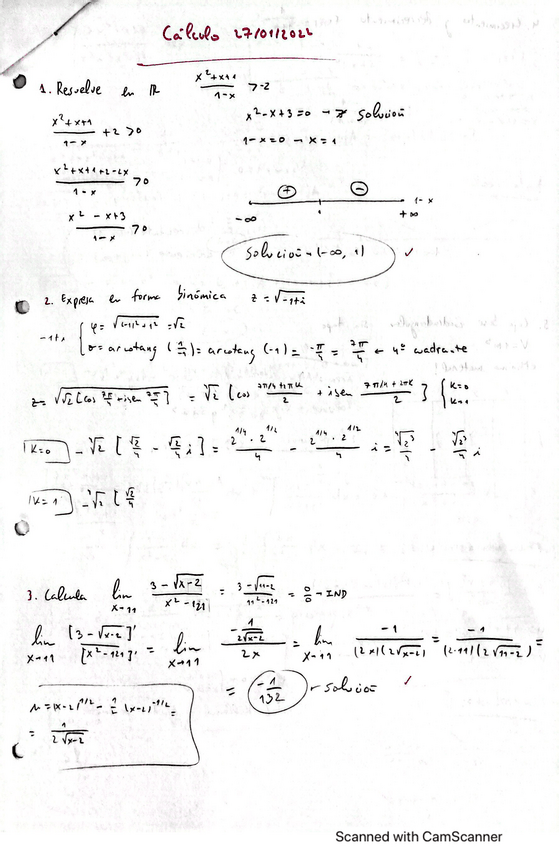 Cálculo 27/01/2022
1. Resuelve en ℝ (x²+x+1)/(1-x) > -2
(x²+x+1)/(1-x) + 2 > 0
x²-x+3=0 → ∄ solución
1-x=0 → x=1
(x²+x+1+2-2x)/(1-x) > 0
⊕ ⊖
-∞ 1 +∞ 1-x
(x²-x+3)/(1-x) > 0
Solución → (-∞, 1) ✓
2. Expresa en forma binómica z=√(-1+i)
-1+i { φ = √((-1)²+1²) = √2
σ = arcotang (1/-1) = arcotang (-1) = -π/4 = 7π/4 ← 4º cuadrante
z = √(√2 [cos 7π/4 + isen 7π/4]) = ∜2 [cos (7π/4+2πK)/2 + isen (7π/4+2πK)/2] { K=0
K=1
K=0 → ∜2 [√2/4 - √2/4 i] = (2^1/4 · 2^1/2)/4 - (2^1/4 · 2^1/2)/4 i = ∜2³/4 - ∜2³/4 i
K=1 → ∜2 [√2/4
3. Calcula lim x→11 (3-√(x-2))/(x²-121) = (3-√(11-2))/(11²-121) = 0/0 → IND
lim x→11 [3-√(x-2)]'/[x²-121]' = lim x→11 (-1/(2√(x-2)))/(2x) = lim x→11 -1/((2x)(2√(x-2))) = -1/((2·11)(2√(11-2))) =
= -1/132 → solución ✓
= (x-2)^1/2 → 1/2 (x-2)^-1/2 =
= 1/(2√(x-2))
Scanned with CamScanner